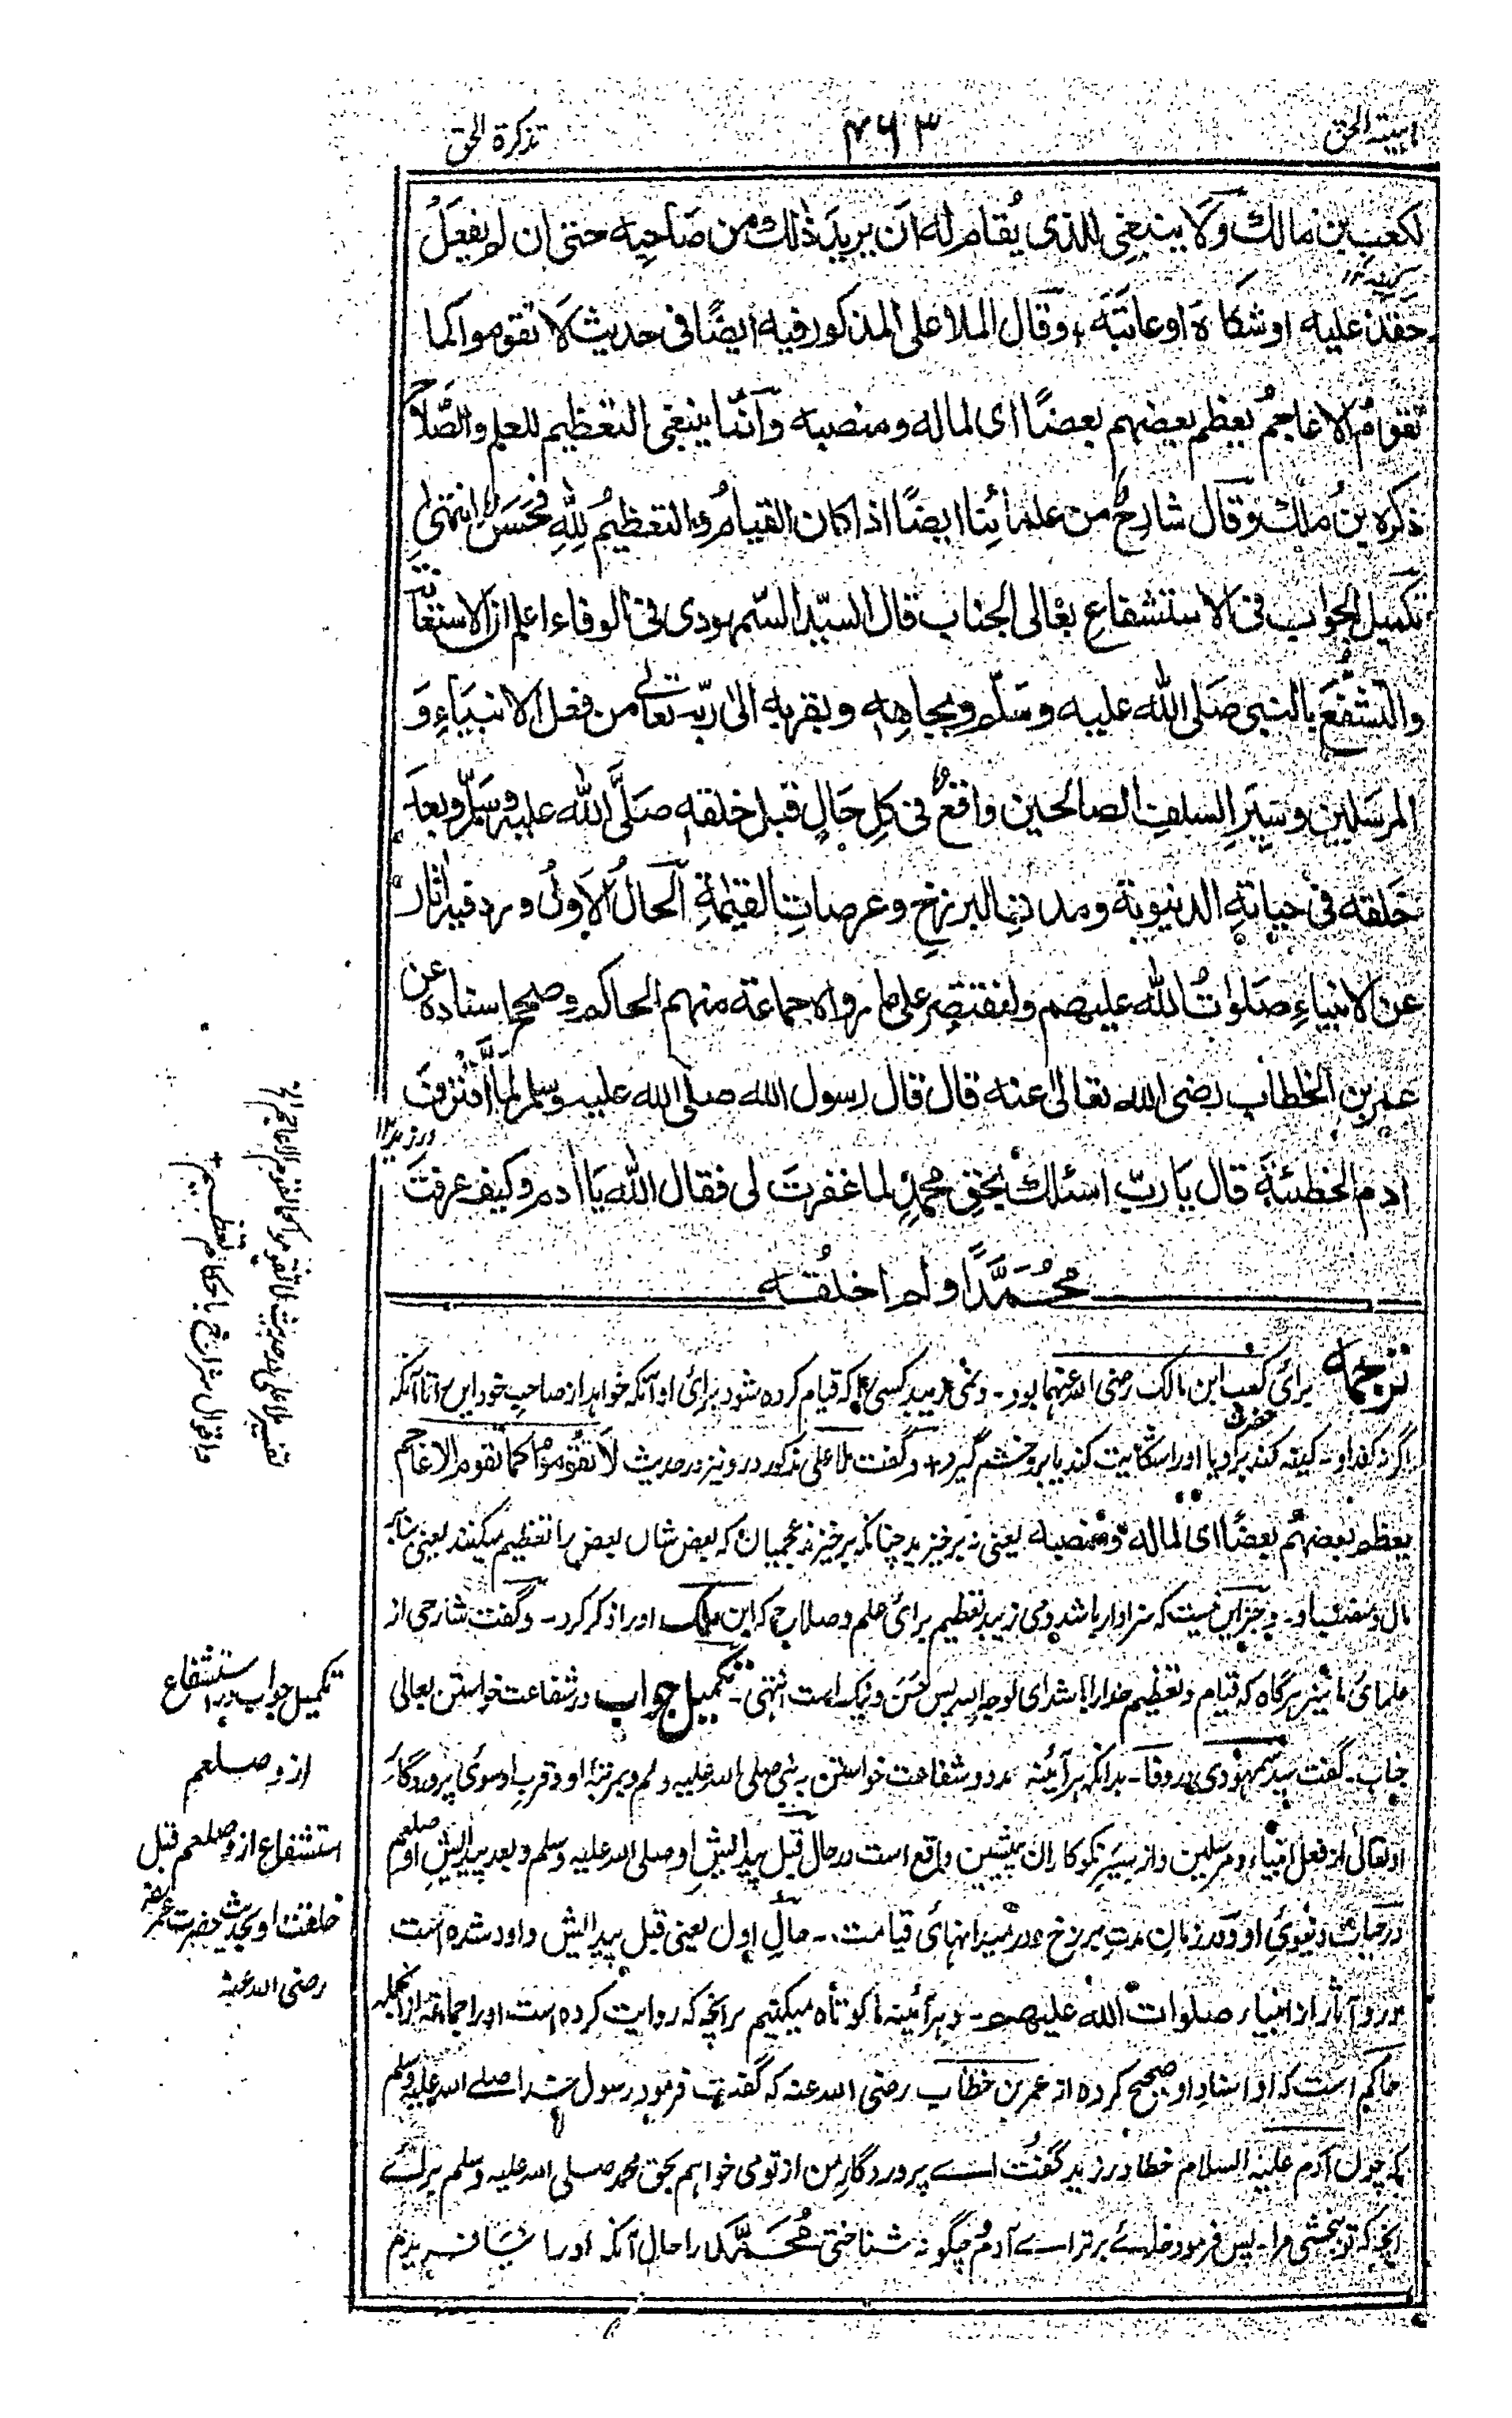 تذکرة الحق
۴۶۳
لكعب بن مالك ولا ينبغي للذي يُقام له ان يريد ذلك من صاحبه حتى ان لم يفعل
حقد عليه او شكاه او عاتبه، وقال الملا على المذكور فيه ايضًا فى حديث لا تقوموا كما
تقوم الاعاجمُ يعظم بعضهم بعضًا اى لماله ومنصبه وانّما ينبغى التعظيم للعلم والصّلاح
ذكره بنُ ملك وقال شارحٌ من علمائنا ايضًا اذا كان القيامُ والتعظيمُ لِلّٰهِ فحَسَنٌ انتهىٰ
تكميل الجواب فى الاستشفاع بعالى الجناب قال السيّد السّمهودى فى الوفاء اعلم ان الاستغاثة
والتشفّعَ بالنبى صَلى اللّٰه عليه وسَلّم وبجاهِه وبقربه الىٰ ربّه تعالٰى من فعل الانبيَاءِ وَ
المرسَلين وسِيَرِ السلفِ الصالحين واقعٌ فى كلِ حَالٍ قبل خلقه صَلَّى اللّٰه عليه وسَلّم وبعدَ
خَلقه فى حياتهِ الدنيوية ومدةِ البرزخِ وعرصاتِ القيٰمةِ اَلحالُ الاَولُ ورد فيه اٰثار
عن الانبياءِ صَلوٰتُ اللّٰه عليهم ولنقتصِر على ما رواه جماعة منهم الحاكم وصحح اسناده عن
عمر بن الخطاب رضى الله تعالىٰ عنه قال قال رسول الله صلى الله عليه وسلم لمّا اقترفَ
ورزید۱۲
اٰدم الخطيئةَ قال يَا ربّ اسئلك بحقِ محمدٍ لما غفرتَ لى فقال اللّٰه يَا اٰدم وكيف عرفتَ
محُمَّدًا ولم اخلُقه
ترجمه برائ کعب ابن مالک رضی الله عنهما بود۔ ونمی زیبد کسی را که قیام کرده شود برائ او آنکه خواهد از صاحب خود این را تا آنکه
اگر نه کند او نه کینه کند برو یا او را شکایت کند یا برو خشم گیرد + وگفت ملا علی مذکور درو نیز در حدیث لا تقُوموُا کما تقوم الاعاجم
یعظم بعضهم بعضًا ای لماله ومنصبه یعنی نه برخیزید چنانکه برخیزند عجمیان که بعض شان بعض را تعظیم میکنند یعنی بنابر
مال و منصب او۔ وجز این نیست که سزاوار باشد ومی زیبد تعظیم برائ علم وصلاح که ابن ملک او را ذکر کرد۔ وگفت شارحی از
علمائ ما نیز هرگاه که قیام وتعظیم خدا را باشد ای لوجه الله پس حَسَن ونیک است انتهی۔ تکمیل جواب در شفاعت خواستن بعالی
جناب۔ گفت سید سمهودی در وفا۔ بدانکه هر آئینه مدد وشفاعت خواستن به نبی صلی الله علیه وسلم وبمرتبهٔ او وقرب او سوئ پروردگار
او تعالی از فعل انبیاء ومرسلین واز سِیَرِ نکوکاران پیشین واقع است در حال قبل پیدائش او صلی الله علیه وسلم وبعد پیدائش او صلعم
در حیات دنیوئ او ودر زمان مدت برزخ ودر میدانهائ قیامت۔ حال اول یعنی قبل پیدائش وارد شده است
درو آثار از انبیاء صلوات اللّٰه علیهم۔ وهر آئینه ما کوتاه میکنیم بر آنچه که روایت کرده است او را جماعة از آنجمله
حاکم است که او اسناد او صحیح کرده از عمر بن خطاب رضی الله عنه که گفت فرمود رسول خدا صلے الله علیه وسلم
که چون آدم علیه السلام خطا ورزید گفت اے پروردگارِ من از تو می خواهم بحق محمد صلی الله علیه وسلم برائے
آنچه که تو بخشی مرا۔ پس فرمود خدائے برتر اے آدم چگونه شناختی مُحَمَّد را حال آنکه او را نیافریدم
تکمیل جواب در استشفاع
از و صلعم
استشفاع از و صلعم قبل
خلقت او بحدیث حضرت عمر
رضی الله عنه